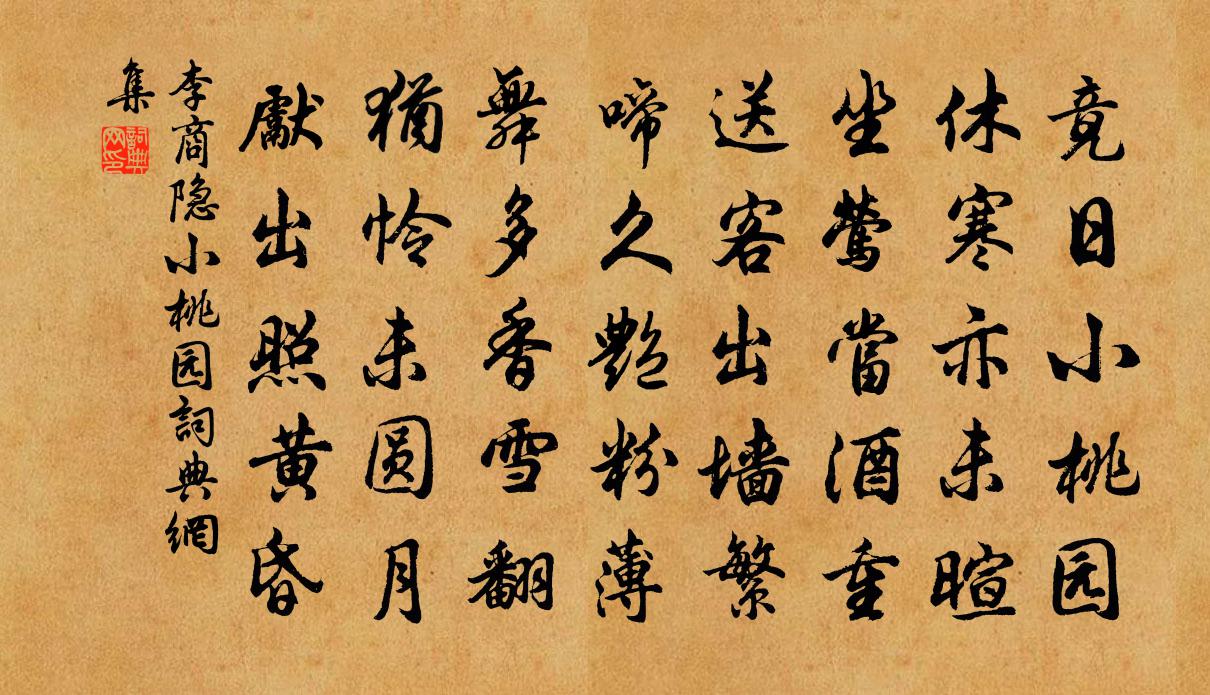 竟日小桃园
休寒亦未暄
坐莺當酒重
送客出墙繁
啼久艷粉薄
舞多香雪翻
猶怜未圆月
獻出照黄昏
李商隐小桃园詞典網
集
詞典
网印